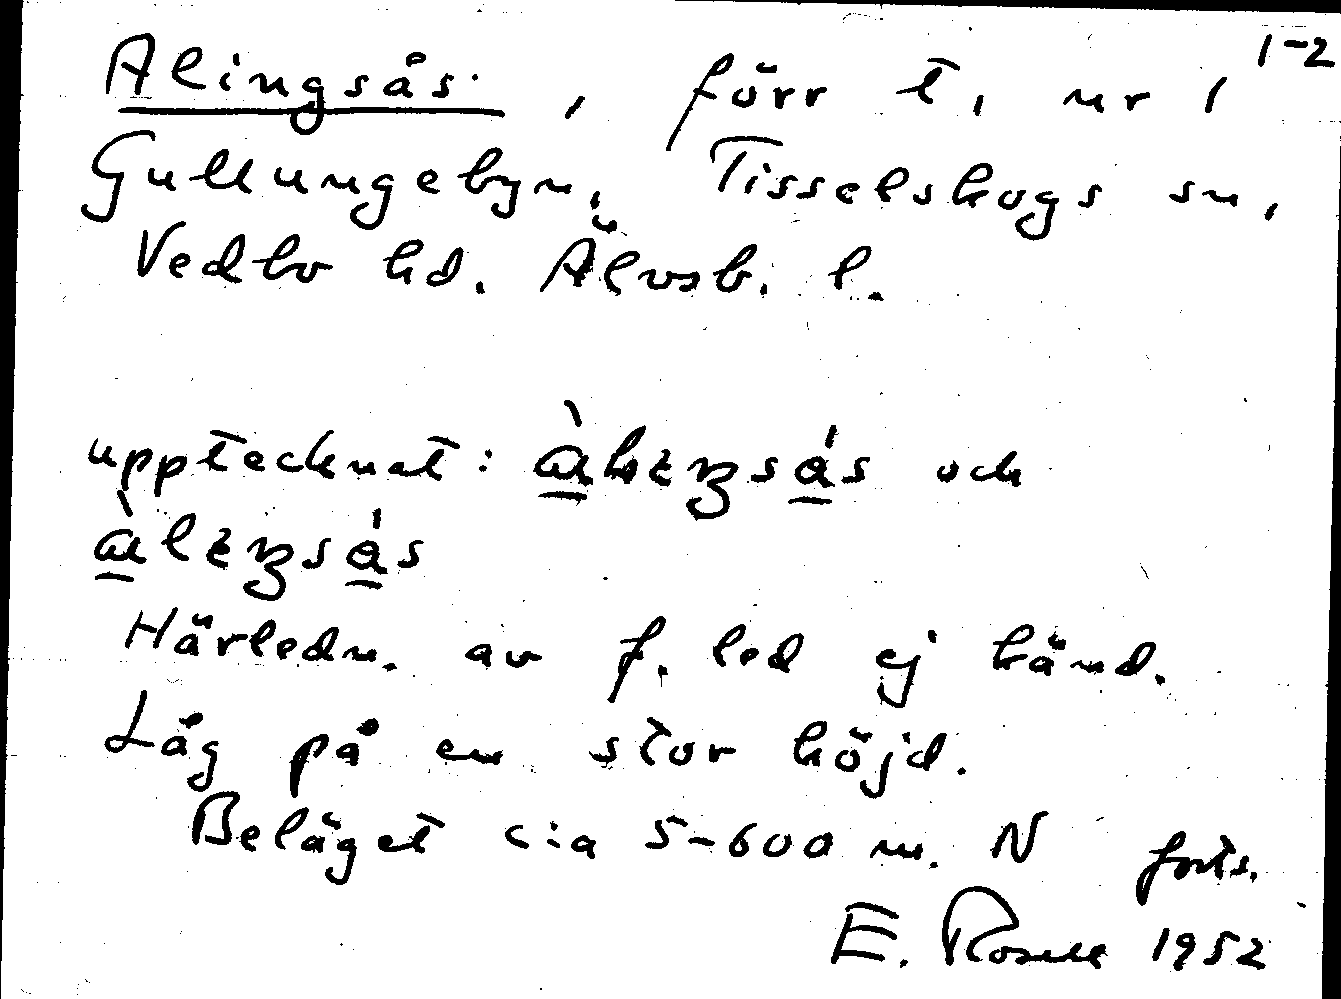 1-2
Alingsås, förr t, nr 1
Gullungebyn, Tisselskogs sn,
Vedbo hd. Älvsb. l.
upptecknat: och
Härledn. av f. led ej känd.
Låg på en stor höjd.
Beläget c:a 5-600 m. N forts.
E. Rosell 1952